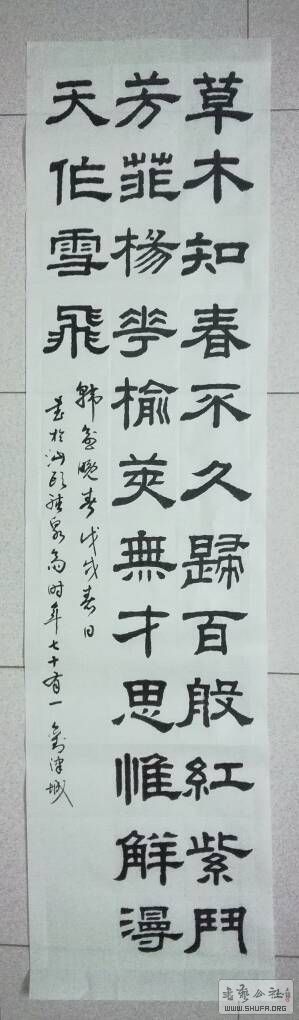 草木知春不久歸百般紅紫鬥
芳菲楊花榆莢無才思惟解漫
天作雪飛
韩愈晚春戊戌春日
書於汕頭 时年七十有一
书艺公社
WWW.SHUFA.ORG